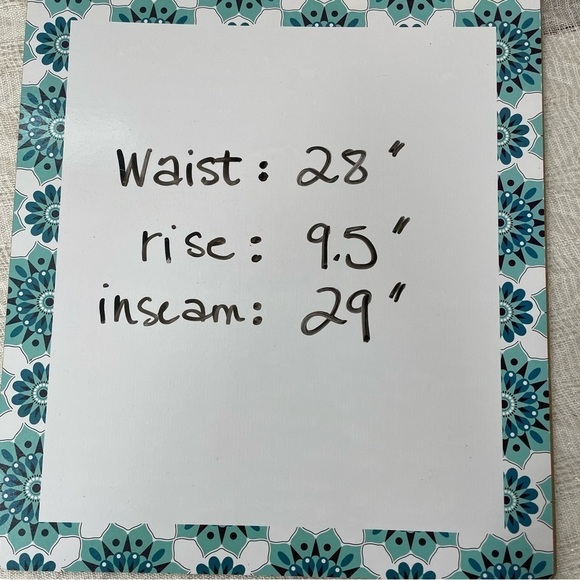 Waist: 28"
rise: 9.5"
inseam: 29"